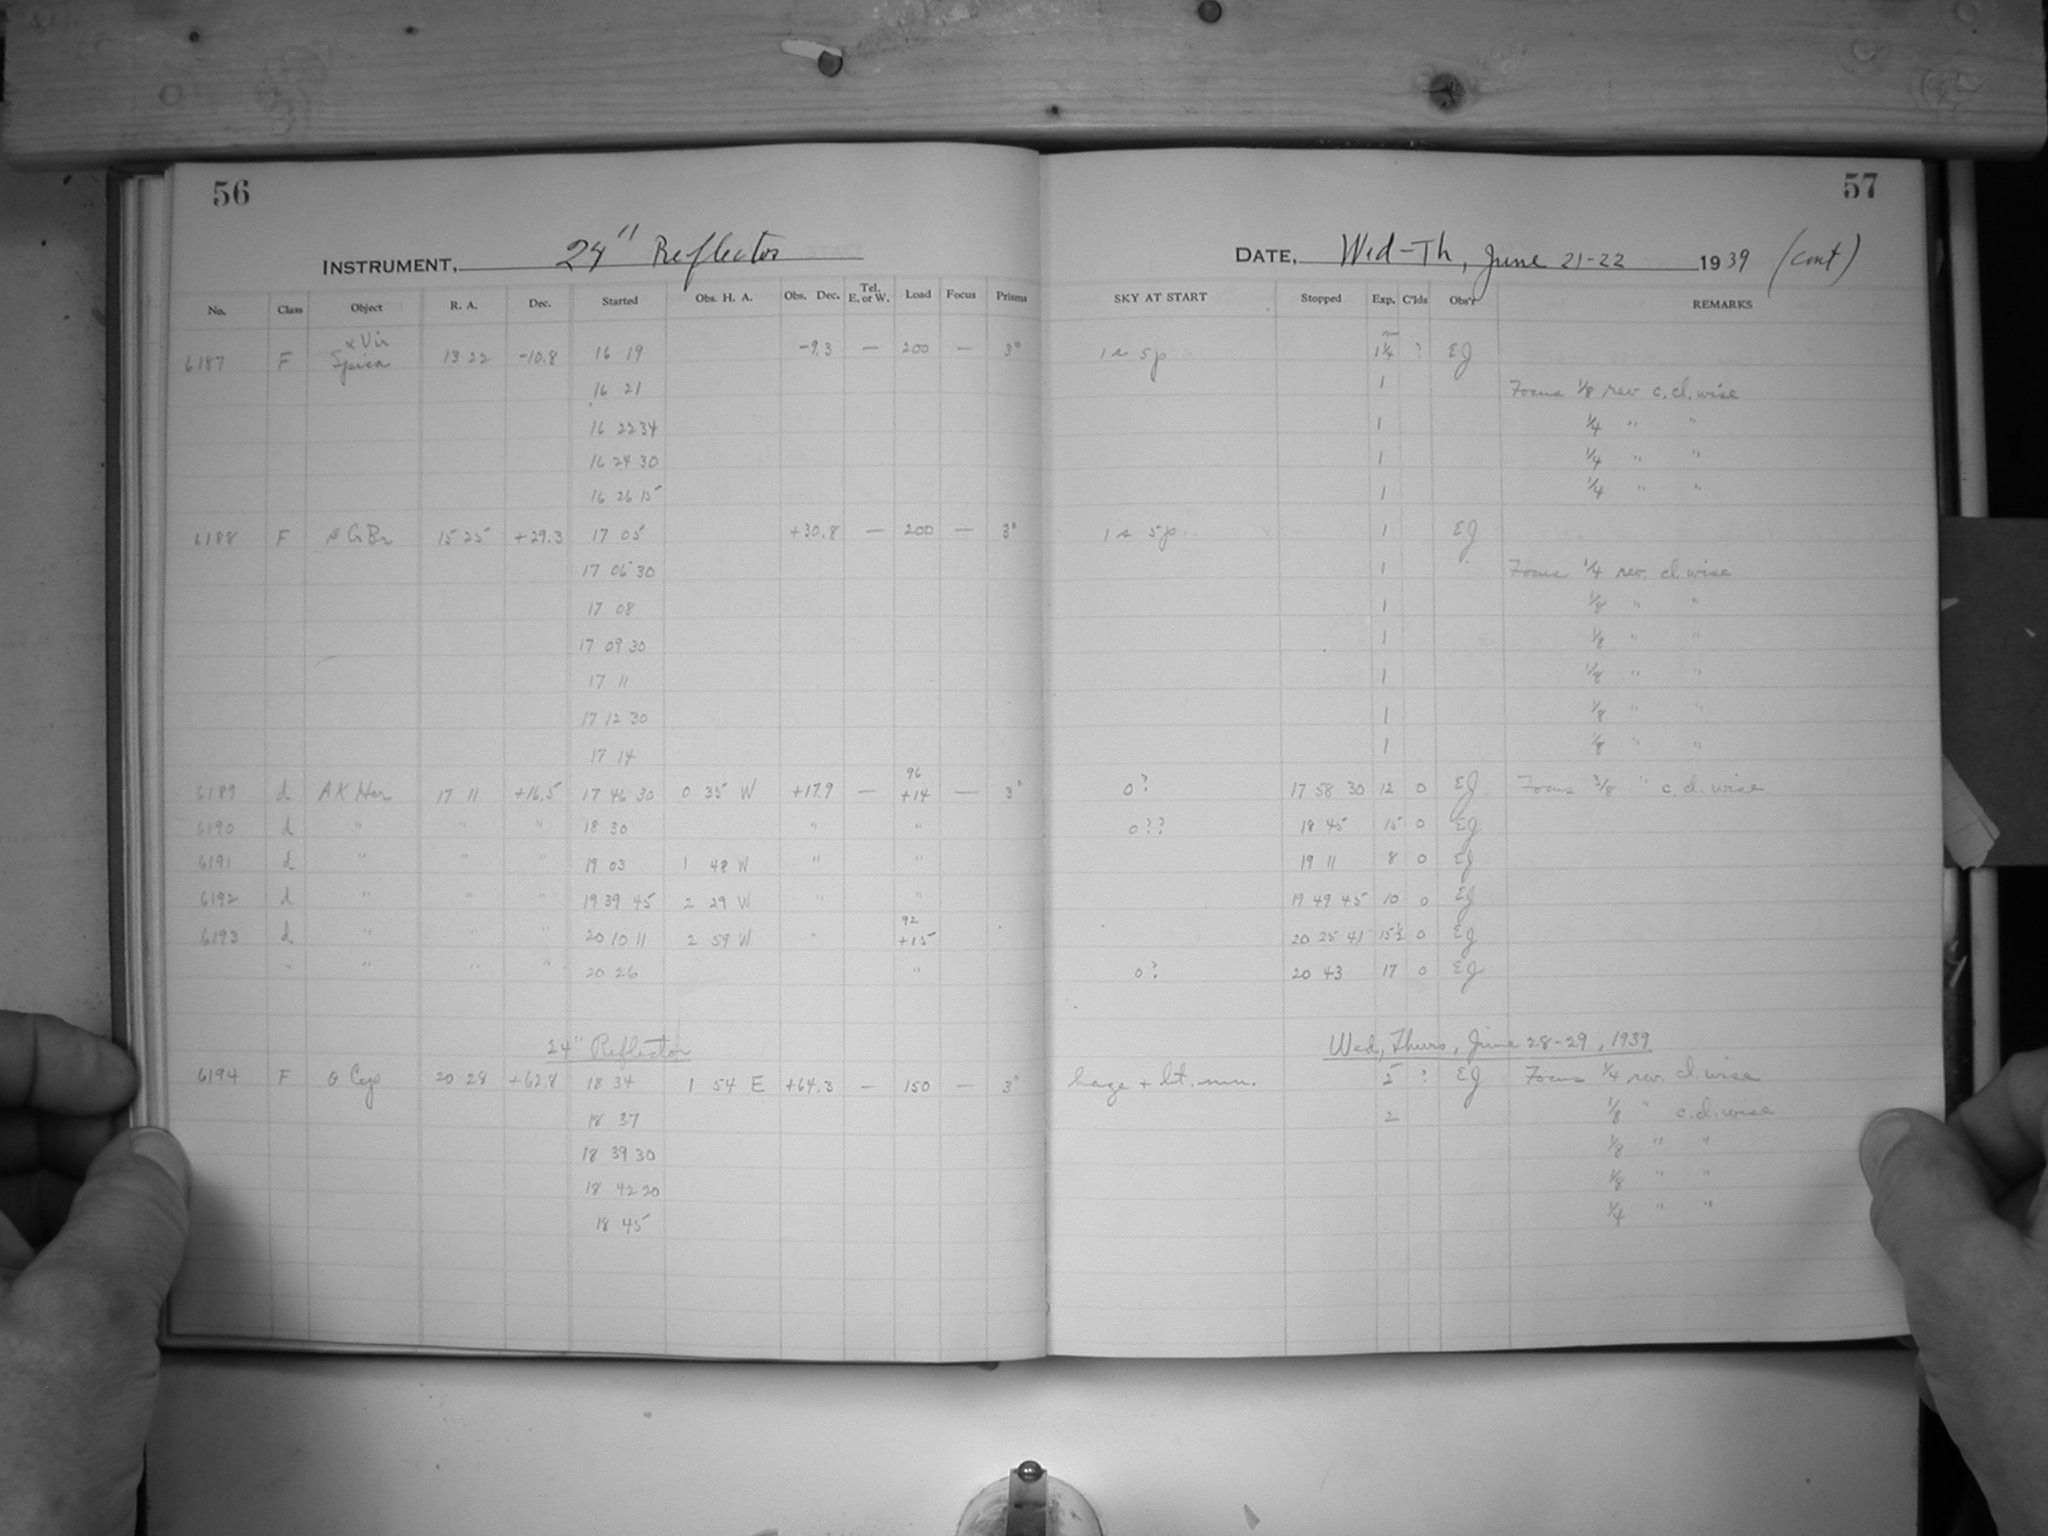 56
57
INSTRUMENT, 24" Reflector
DATE, Wed-Th, June 21-22 1939 (cont)
No. Class Object R. A. Dec. Started Obs. H. A. Obs. Dec. Tel. E. or W. Load Focus Prisms SKY AT START Stopped Exp. C'lds Obs'r REMARKS
α Vir
6187 F Spica 13 22 -10.8 16 19 -9.3 — 200 — 3° 1 1/4 ? EJ
16 21 1 Focus 1/8 rev c.cl.wise
16 22 34 1 1/4 " "
16 24 30 1 1/4 " "
16 26 15 1 1/4 " "
6188 F β CrBr 15 25 +29.3 17 05 +30.8 — 200 — 3° 1 EJ
17 06 30 1 Focus 1/4 rev. cl.wise
17 08 1 1/8 " "
17 09 30 1 1/8 " "
17 11 1 1/8 " "
17 12 30 1 1/8 " "
17 14 1 1/8 " "
96
6189 d AK Her 17 11 +16.5 17 46 30 0 35 W +17.9 — +14 — 3° 0? 17 58 30 12 0 EJ Focus 3/8 " c.cl.wise
6190 d " " " 18 30 " " 0?? 18 45 15 0 EJ
6191 d " " " 19 03 1 48 W " " 19 11 8 0 EJ
6192 d " " " 19 39 45 2 29 W " " 19 49 45 10 0 EJ
92
6193 d " " " 20 10 11 2 59 W " +15 20 25 41 15 1/2 0 EJ
" " " " 20 26 " 0? 20 43 17 0 EJ
24" Reflector Wed, Thurs, June 28-29, 1939
6194 F θ Cep 20 28 +62.8 18 34 1 54 E +64.3 — 150 — 3° haze + ? EJ Focus 1/4 rev. cl.wise
18 37 2 1/8 " c.cl.wise
18 39 30 1/8 " "
18 42 20 1/8 " "
18 45 1/4 " "